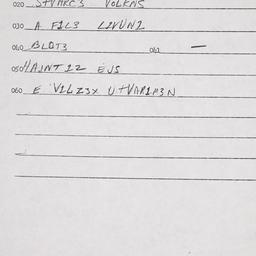 020 STVARC3 VOLKNS
030 A F1L3 LIVUN2
040 BLOT3 041 —
050 HAJNT12 EJS
060 E V1LZ3X U+VAR1M3N